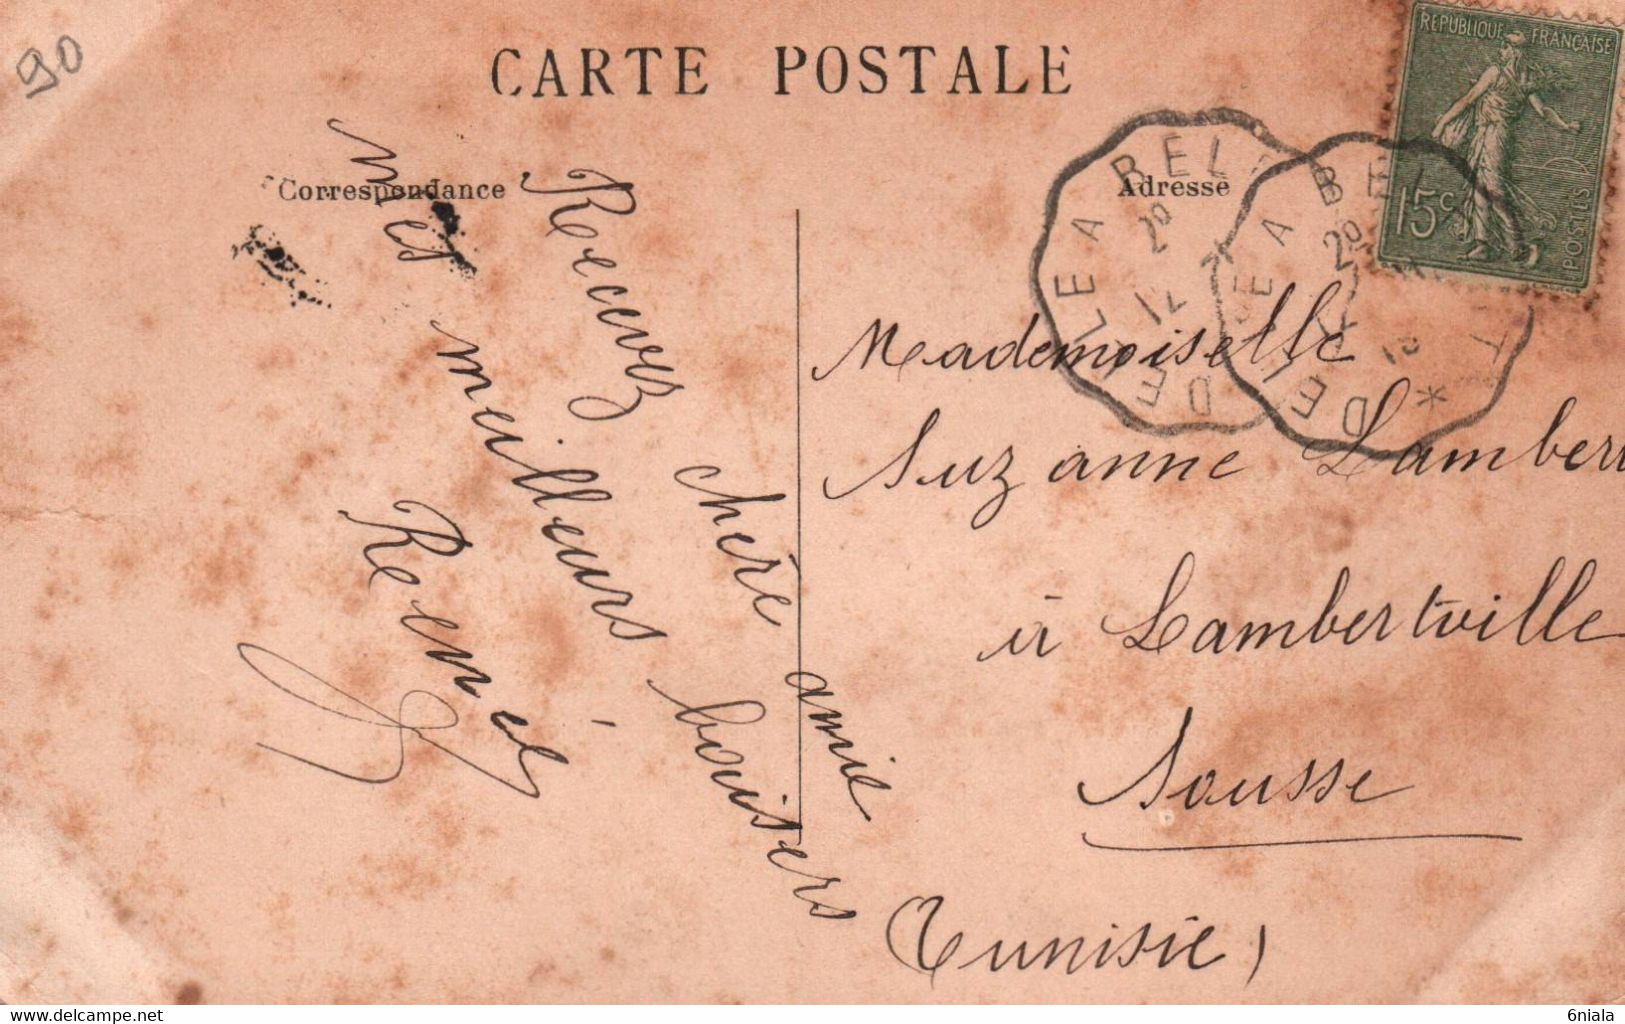 90
CARTE POSTALE
Correspondance
Adresse
REPUBLIQUE FRANÇAISE
15c
POSTES
DELLE A BEL
20
12
DELLE A BEL T
20
Recevez chère amie
mes meilleurs bouisers
Mademoiselle
Suzanne Lambert
à Lambertville
Sousse
(Tunisie)
www.delcampe.net
6niala